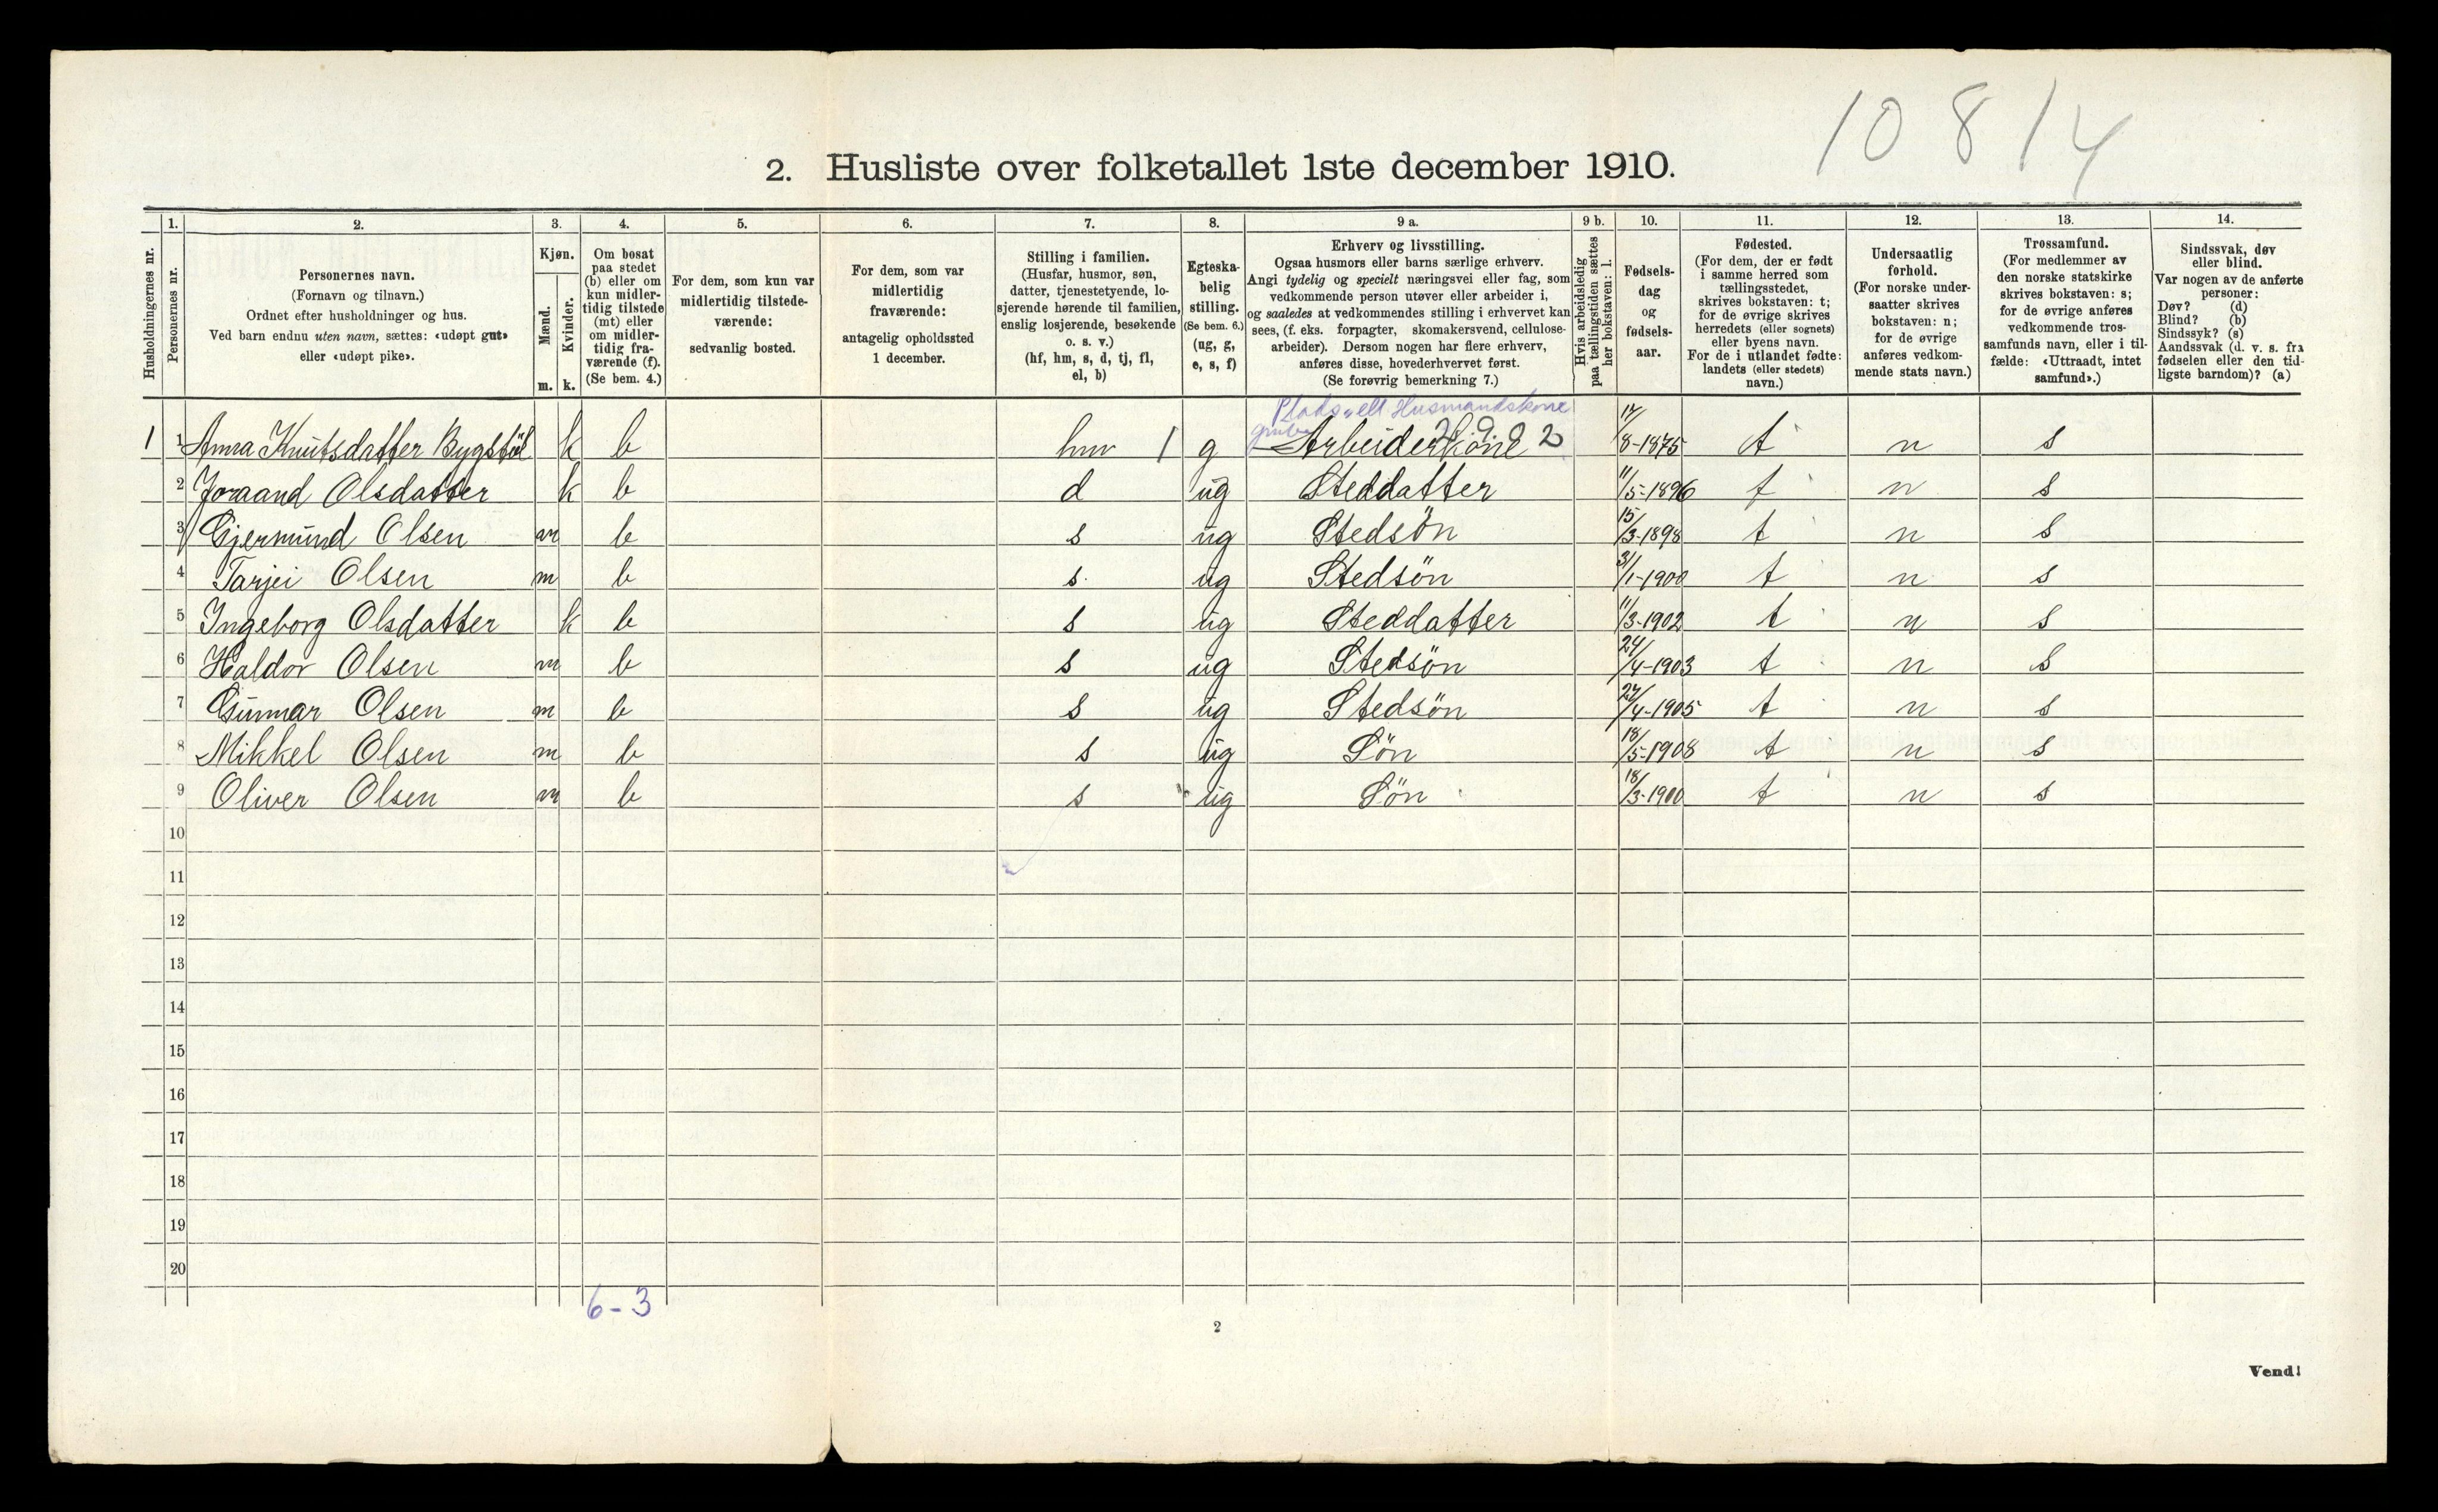 10814
2. Husliste over folketallet 1ste december 1910.
Husholdningernes nr.
1.
Personernes nr.
2.
Personernes navn.
(Fornavn og tilnavn.)
Ordnet efter husholdninger og hus.
Ved barn endnu uten navn, sættes: «udøpt gut»
eller «udøpt pike».
3.
Kjøn.
Mænd.
Kvinder.
m. k.
4.
Om bosat
paa stedet
(b) eller om
kun midler-
tidig tilstede
(mt) eller
om midler-
tidig fra-
værende (f).
(Se bem. 4.)
5.
For dem, som kun var
midlertidig tilstede-
værende:
sedvanlig bosted.
6.
For dem, som var
midlertidig
fraværende:
antagelig opholdssted
1 december.
7.
Stilling i familien.
(Husfar, husmor, søn,
datter, tjenestetyende, lo-
sjerende hørende til familien,
enslig losjerende, besøkende
o. s. v.)
(hf, hm, s, d, tj, fl,
el, b)
8.
Egteska-
belig
stilling.
(Se bem. 6.)
(ug, g,
e, s, f)
9 a.
Erhverv og livsstilling.
Ogsaa husmors eller barns særlige erhverv.
Angi tydelig og specielt næringsvei eller fag, som
vedkommende person utøver eller arbeider i,
og saaledes at vedkommendes stilling i erhvervet kan
sees, (f. eks. forpagter, skomakersvend, cellulose-
arbeider). Dersom nogen har flere erhverv,
anføres disse, hovederhvervet først.
(Se forøvrig bemerkning 7.)
9 b.
Hvis arbeidsledig
paa tællingstiden sættes
her bokstaven: l.
10.
Fødsels-
dag
og
fødsels-
aar.
11.
Fødested.
(For dem, der er født
i samme herred som
tællingsstedet,
skrives bokstaven: t;
for de øvrige skrives
herredets (eller sognets)
eller byens navn.
For de i utlandet fødte:
landets (eller stedets)
navn.)
12.
Undersaatlig
forhold.
(For norske under-
saatter skrives
bokstaven: n;
for de øvrige
anføres vedkom-
mende stats navn.)
13.
Trossamfund.
(For medlemmer av
den norske statskirke
skrives bokstaven: s;
for de øvrige anføres
vedkommende tros-
samfunds navn, eller i til-
fælde: «Uttraadt, intet
samfund».)
14.
Sindssvak, døv
eller blind.
Var nogen av de anførte
personer:
Døv? (d)
Blind? (b)
Sindssyk? (s)
Aandssvak (d. v. s. fra
fødselen eller den tid-
ligste barndom)? (a)
Plads ell Husmandskone
1 1 Anna Knutsdatter Bygstöl k b hm 1 g Arbeiderkone 2 17/8-1875 t n s
2 Joraand Olsdatter k b d ug Steddatter 11/5-1896 t n s
3 Gjermund Olsen m b s ug Stedsön 15/3-1898 t n s
4 Tarjei Olsen m b s. ug Stedsön 31/1-1900 t n s
5 Ingeborg Olsdatter k b s ug Steddatter 11/3-1902 t n s
6 Haldor Olsen m b s ug Stedsön 24/4-1903 t n s
7 Gunnar Olsen m b s ug Stedsön 27/4-1905 t n s
8 Mikkel Olsen m b s ug Sön 18/5-1908 t n s
9 Oliver Olsen m b s ug Sön 18/3-1900 t n s
10
11
12
13
14
15
16
17
18
19
20
6-3
2
Vend!